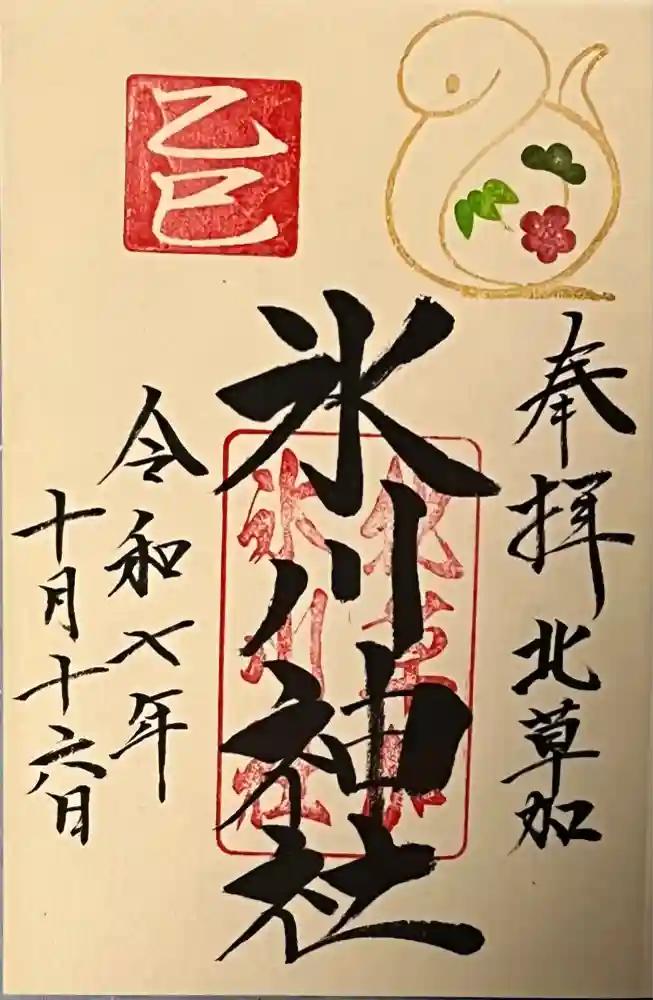 乙巳
奉拝 北草加
氷川神社
令和七年
十月十六日